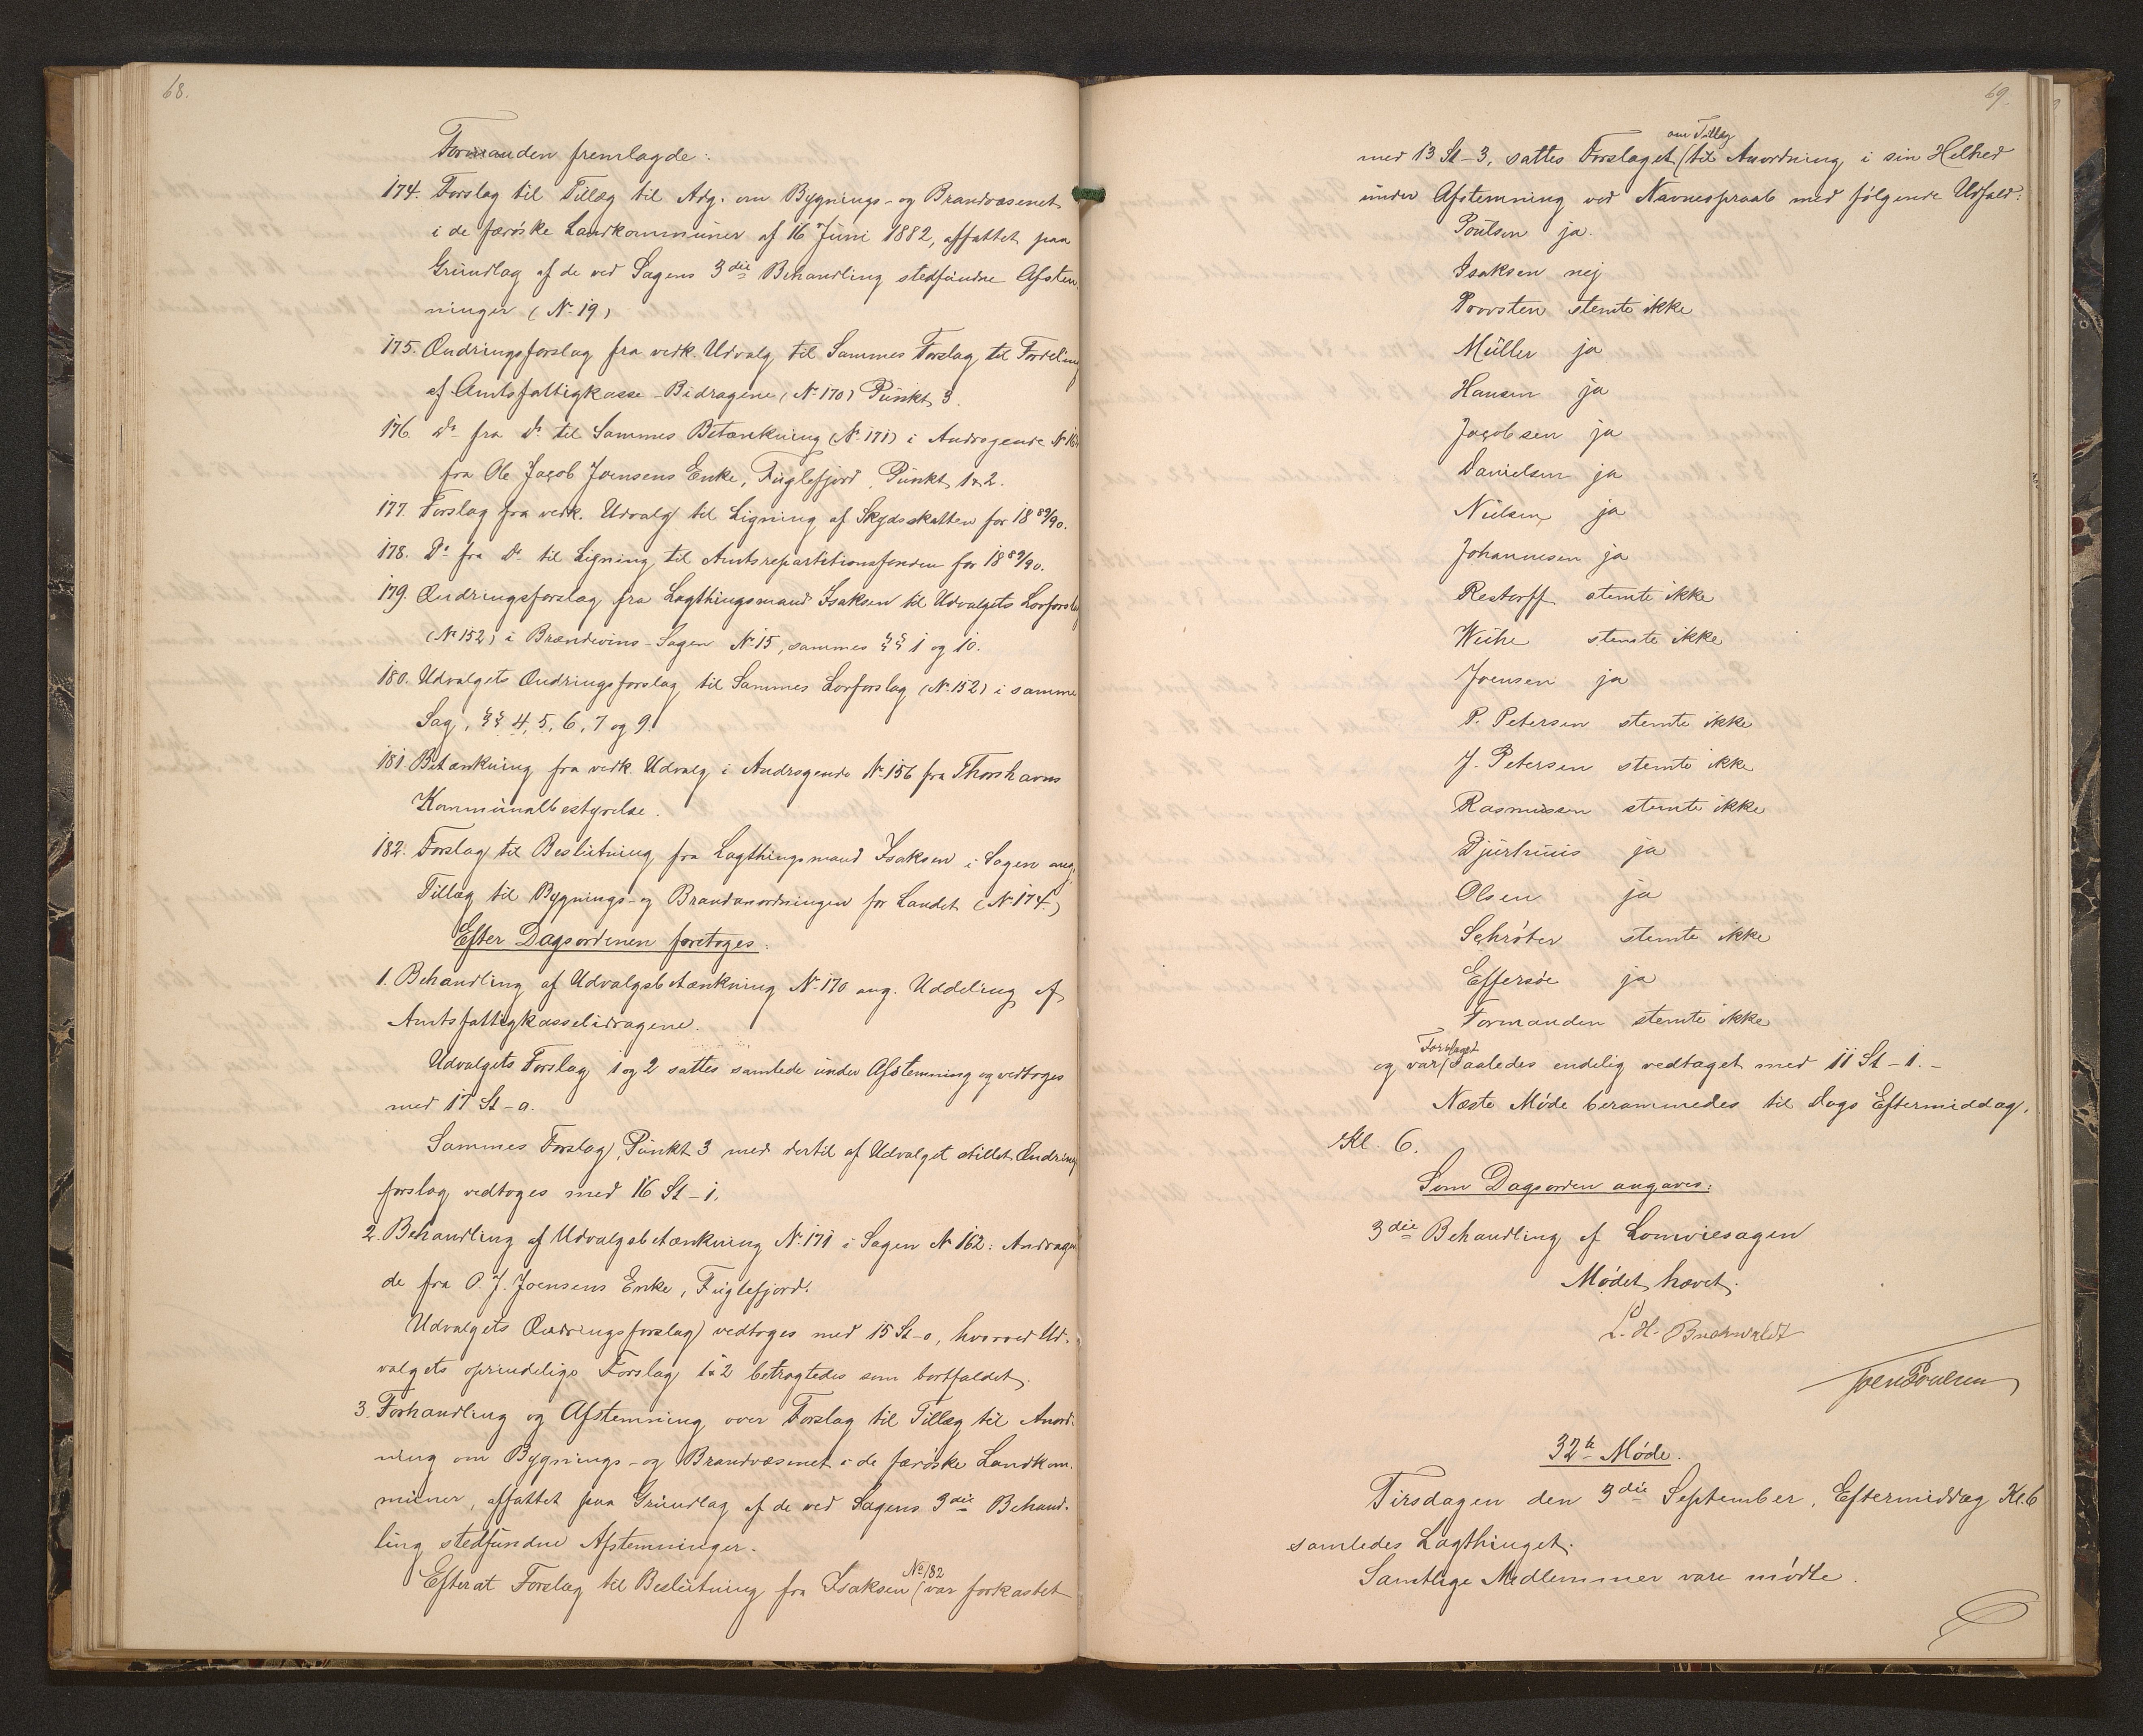 68.
Formanden fremlagde:
174. Forslag til Tillæg til Adg. om Bygnings- og Brandvæsenet
i de færøske Landkommuner af 16 Juni 1882, affattet paa
Grundlag af de ved Sagens 3die Behandling stedfundne Afstem
ninger (No 19)
175. Ændringsforslag fra vedk. Udvalg til Sammes Forslag til Fordeling
af Amtsfattigkasse-Bidragene (No 170) Punkt 3.
176. Do fra Do til Sammes Betænkning (No 171) i Andragende No 162
fra Ole Jacob Joensens Enke, Fuglefjord, Punkt 1 & 2.
177. Forslag fra vedk. Udvalg til Ligning af Skydsskatten for 1889/90.
178. Do fra Do til Ligning til Amtsrepartitionsfonden for 1889/90.
179. Ændringsforslag fra Lagthingsmand Isaksen til Udvalgets Lovforslag
(No 152) i Brændevins-Sagen No 15, sammes §§ 1 og 10.
180. Udvalgets Ændringsforslag til Sammes Lovforslag (No 152) i samme
Sag, §§ 4, 5, 6, 7 og 9.
181. Betænkning fra vedk. Udvalg i Andragende No 156 fra Thorshavns
Kommunalbestyrelse.
182. Forslag til Beslutning fra Lagthingsmand Isaksen i Sagen ang.
Tillæg til Bygnings- og Brandanordningen for Landet (No 174.)
Efter Dagsordenen foretoges:
1. Behandling af Udvalgsbetænkning No 170 ang. Uddeling af
Amtsfattigkassebidragene.
Udvalgets Forslag 1 og 2 sattes samlede under Afstemning og vedtoges
med 17 St - 0.
Sammes Forslag, Punkt 3 med dertil af Udvalget stillet Ændrings
forslag vedtoges med 16 St - 1.
2. Behandling af Udvalgsbetænkning No 171 i Sagen No 162: Andragen
de fra O. J. Joensens Enke, Fuglefjord.
Udvalgets Ændringsforslag vedtoges med 15 St - 0, hvorved Ud-
valgets oprindelige Forslag 1 & 2 betragtedes som bortfaldet.
3. Forhandling og Afstemning over Forslag til Tillæg til Anord-
ning om Bygnings- og Brandvæsenet i de færøske Landkom-
muner, affattet paa Grundlag af de ved Sagens 3die Behand-
ling stedfundne Afstemninger.
No 182
Efterat Forslag til Beslutning fra Isaksen (var forkastet
69.
om Tillæg
med 13 St - 3, sattes Forslaget (til Anordning i sin Helhed
under Afstemning ved Navneopraab med følgende Udfald:
Poulsen ja.
Isaksen nej
Provsten stemte ikke
Müller ja
Hansen ja
Jacobsen ja
Danielsen ja
Nielsen ja
Johannesen ja
Restorff stemte ikke
Weihe stemte ikke
Joensen ja
P. Petersen stemte ikke
J. Petersen stemte ikke
Rasmussen stemte ikke
Djurhuus ja
Olsen ja
Schrøter stemte ikke
Effersøe ja
Formanden stemte ikke
Forslaget
og var (saaledes endelig vedtaget med 11 St - 1. -
Næste Møde berammedes til Dags Eftermiddag,
Kl. 6.
Som Dagsorden angaves:
3die Behandling af Lomviesagen
Mødet hævet.
L. H. Buchwaldt
Joen Poulsen
32te Møde.
Tirsdagen den 3die September, Eftermiddag Kl. 6
samledes Lagthinget.
Samtlige Medlemmer vare mødte.